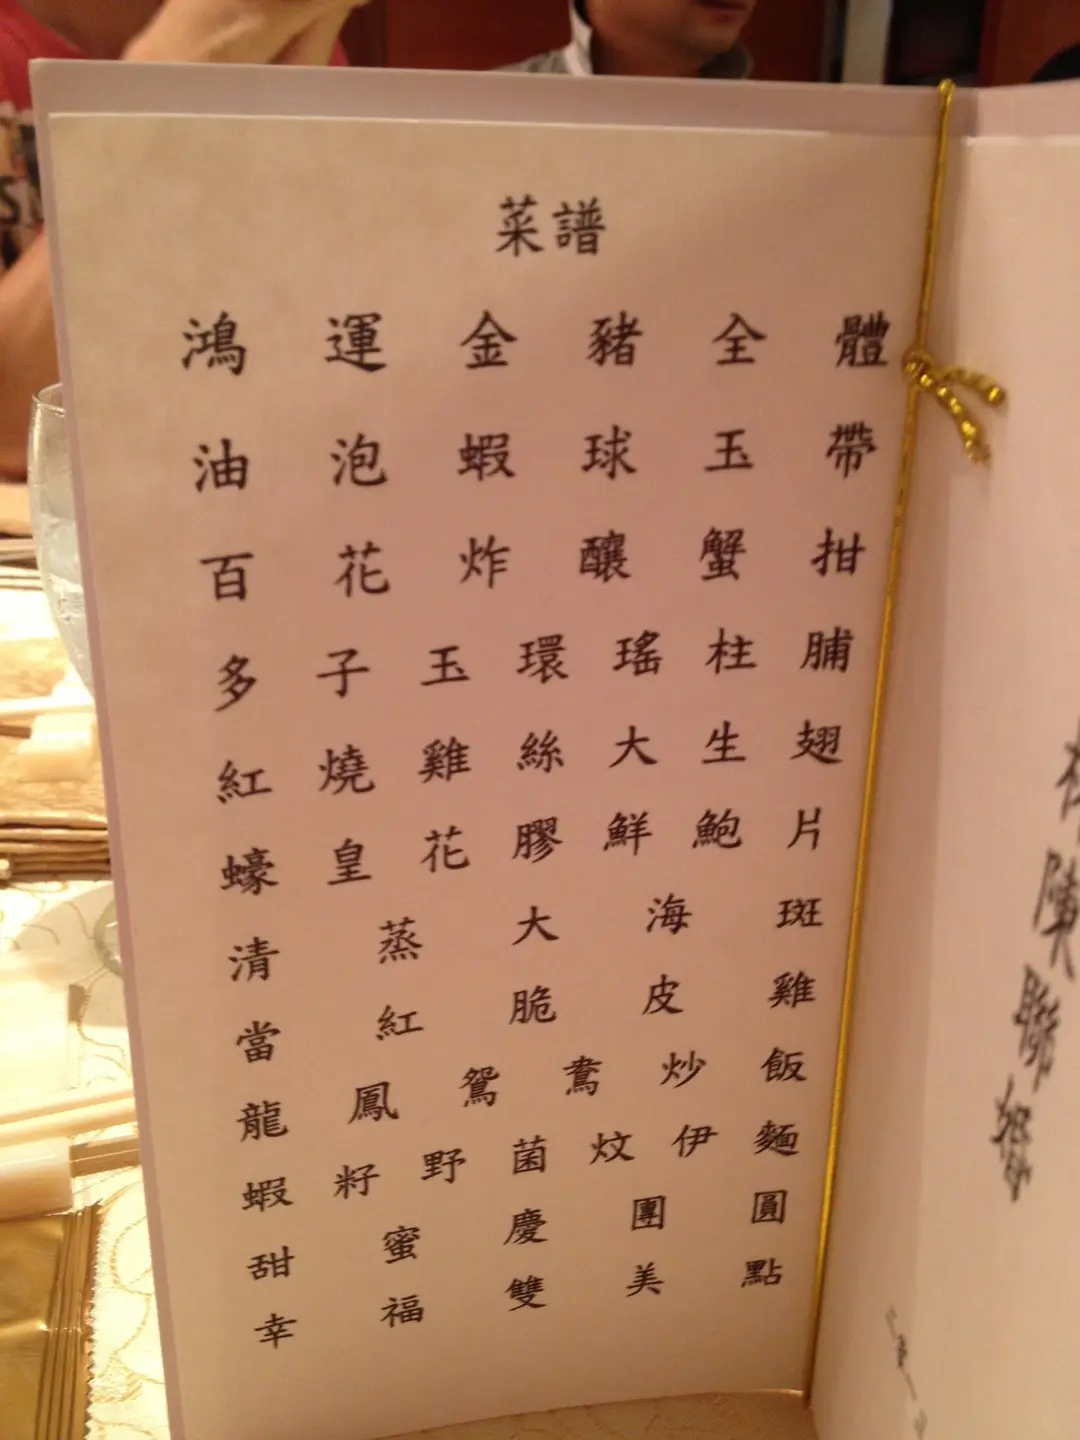 菜譜
鴻運金豬全體
油泡蝦球玉帶
百花炸釀蟹拑
多子玉環瑤柱脯
紅燒雞絲大生翅
蠔皇花膠鮮鮑片
清蒸大海斑
當紅脆皮雞
龍鳳鴛鴦炒飯
蝦籽野菌炆伊麵
甜蜜慶團圓
幸福雙美點
陳聯婚